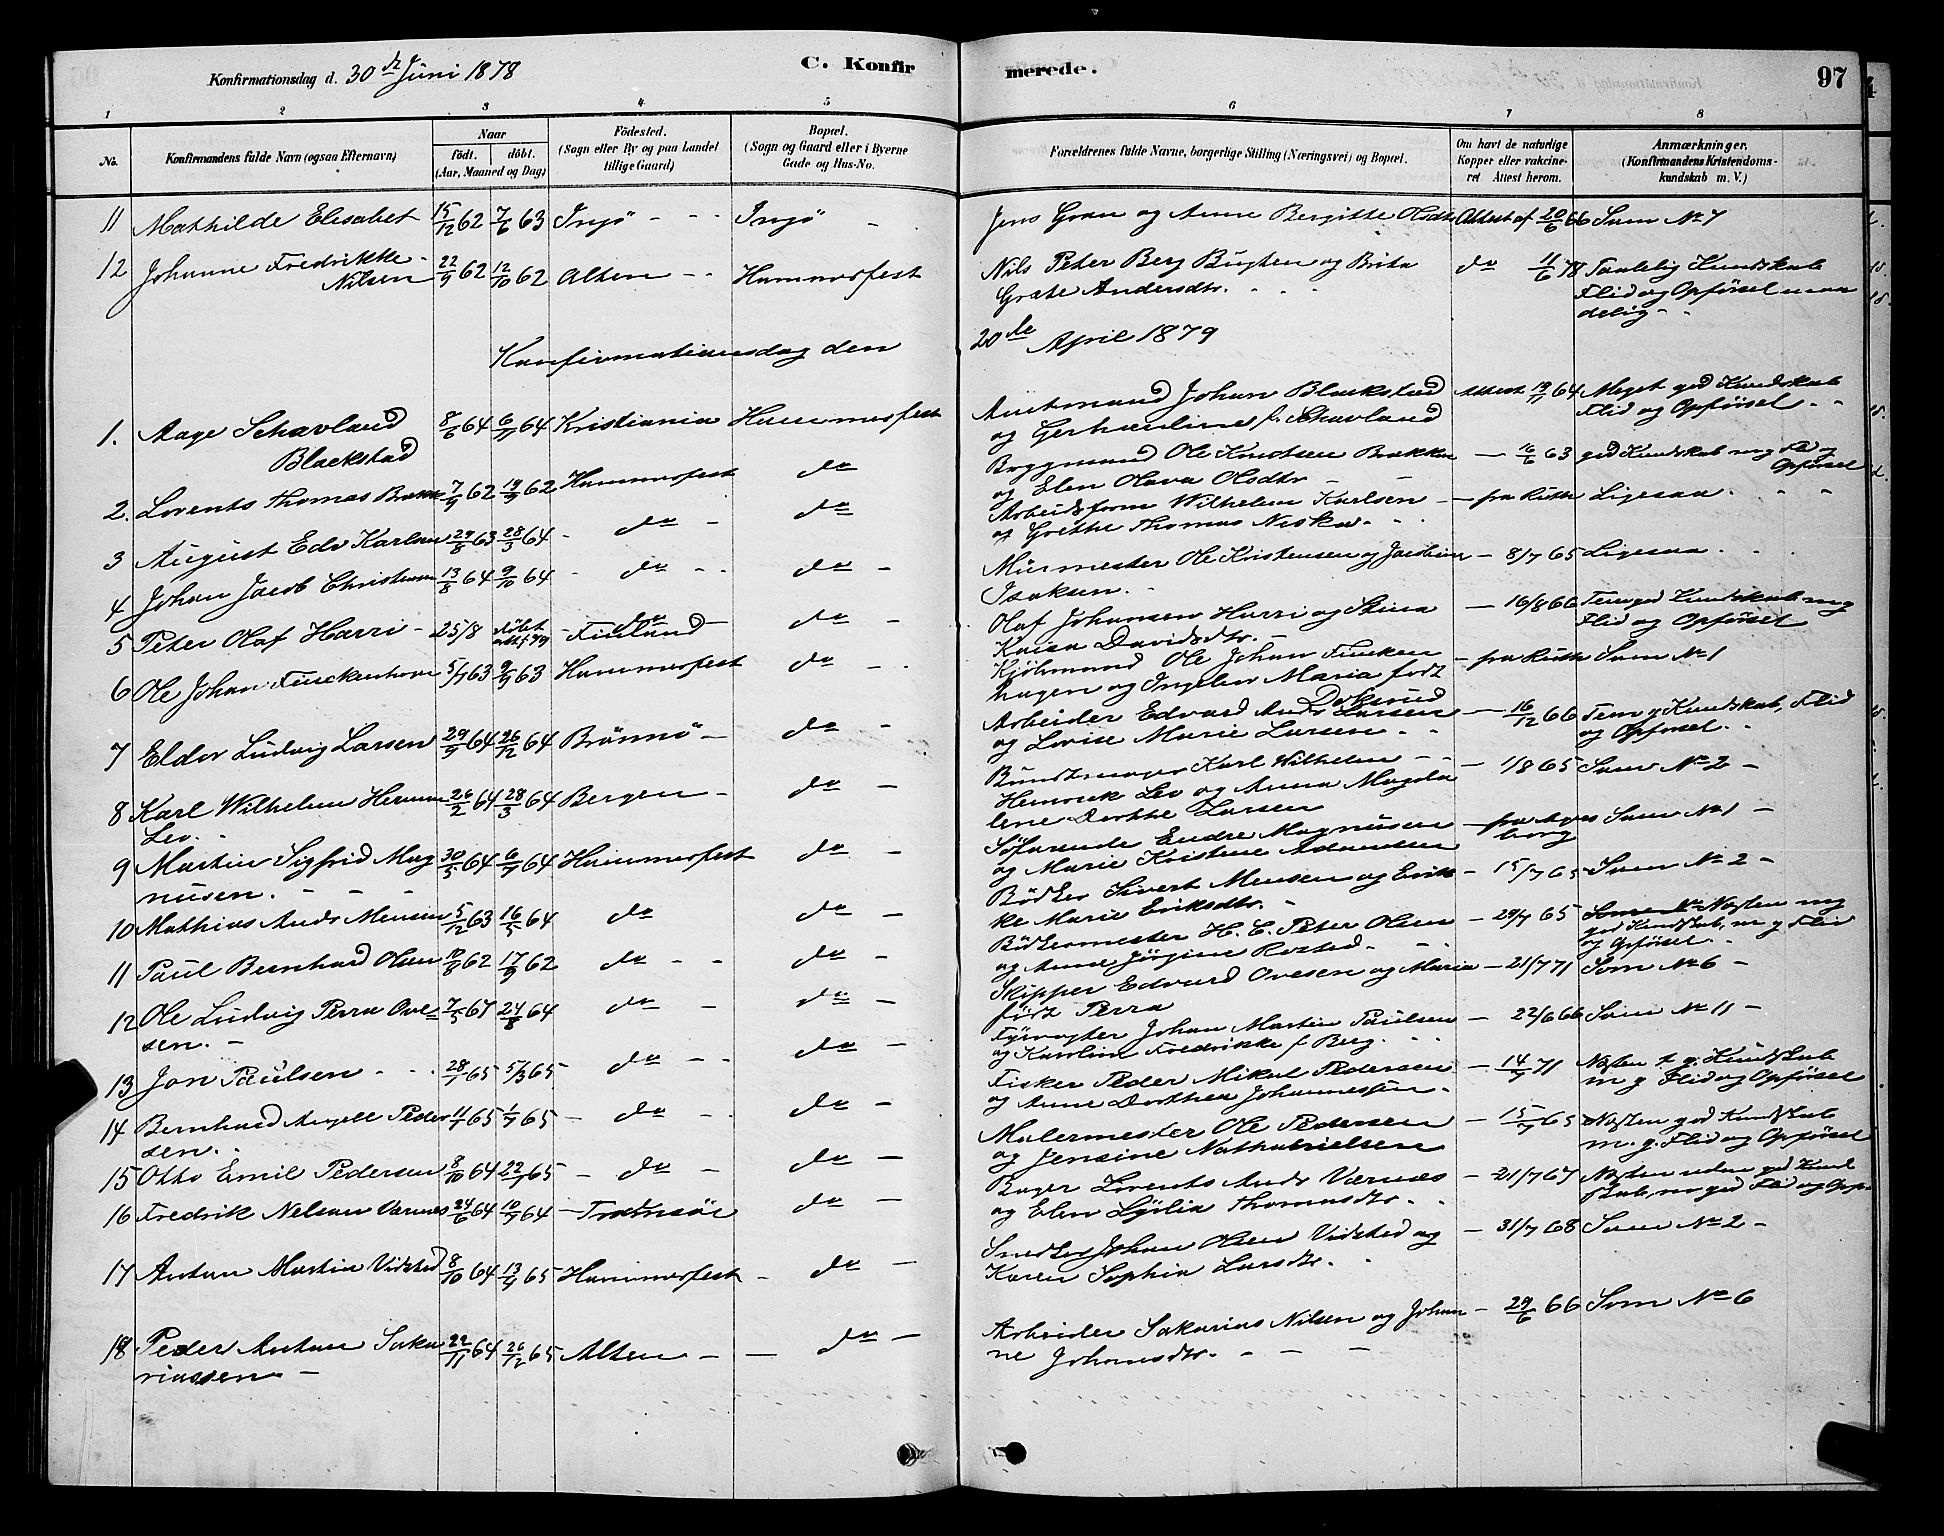 Konfirmationsdag d. 30de Juni 1878
C. Konfir
merede.
97
1 2 3 4 5 6 7 8
No.
Konfirmandens fulde Navn (ogsaa Efternavn)
Naar
födt. döbt.
(Aar, Maaned og Dag)
Födested.
(Sogn eller By og paa Landet
tillige Gaard)
Bopæl.
(Sogn og Gaard eller i Byerne
Gade og Hus-No.
Forældrenes fulde Navne, borgerlige Stilling (Næringsvei) og Bopæl.
Om havt de naturlige
Kopper eller vakcine-
ret Attest herom.
Anmærkninger.
(Konfirmandens Kristendoms-
kundskab m. V.)
11 Mathilde Elisabet 15/12 62 7/6 63 Ingö - - Ingö - Jens Gran og Anne Bergitte Olsdtr Attest af 20/6 66 Som No 7
12 Johanne Fredrikke 22/9 62 12/10 62 Alten - - Hammerfest Nils Peter Berg Bugten og Brita do 11/6 78 Taalelig Kundskab
Nilsen Grete Andersdtr. Flid og Opförsel maa
delig -
Konfirmationsdag den 20de April 1879
1. Aage Schavland 8/6 64 6/7 64 Kristiania Hammerfest Amtmand Johan Blackstad Attest 19/11 64 Meget god Kundskab
Blackstad og Gerhardine f. Schavland Flid og Opförsel
2. Lorents Thomas Brekke 7/9 62 19/9 62 Hammerfest do Byggmand Ole Knudsen Brekke - 16/6 63 god Kundskab mg Fl og
og Elen Olava Olsdtr Opförsel
3 August Edv Karlsen 29/8 63 28/3 64 - do - do Arbeidsform Wilhelm Karlsen - fra Ruth Ligesaa
og Grethe Thomas Niska
4 Johan Jacob Christensen 13/8 64 9/10 64 - do - do - Murmester Ole Kristensen og Jacobine - 8/7 65 Ligesaa
Isaksen
5 Peter Olaf Harri - 25/8 döbt Finland do - Olaf Johansen Harri og Stina - 16/8 66 Temgod Kundskab mg
Kaisa Davidsdtr. Flid og Opförsel
6 Ole Johan Finckenhagen 5/7 63 9/9 63 Hammerfest do - Kjöbmand Ole Johan Fincken - fra Ruth Som No 1
hagen og Ingebor Maria født
7 Eldor Ludvig Larsen 29/9 64 26/12 64 Brönnö - do - Arbeider Edvard Andr Larsen - 16/12 66 Tem g Kundskab, Flid
og Lovise Marie Larsen og Opförsel
8 Karl Wilhelm Herman 26/2 64 28/3 64 Bergen - do - Bundtmager Karl Wilhelm - 1/8 65 Som No 2 -
Lev. Henrick Lev og Anna Magda
lene Dorthe Larsen
9 Martin Sigfrid Mag 30/5 64 6/7 64 Hammerfest do - Søfarende Endre Magnusen - fra Agers Som No 1 -
nusen. og Marie Kristine Adamsen borg
10 Mathias Andr Mensen 5/12 63 16/5 64 do do - Bødker Sivert Mensen og Erik - 15/7 65 Som No 2 -
ke Marie Eriksdtr. -
11 Paul Bernhard Olsen 10/8 62 17/9 62 do - - do - Bödkermester H. C. Peter Olsen - 29/7 65 Næsten mg
og Anne Jörgine Rosted. god Kundskab, m g Flid
og Opförsel
12 Ole Ludvig Perra Ove 7/5 64 24/8 64 do - do - Skipper Edvard Ovesen og Maria - 21/7 71 Som No 6 -
sen. - født Perra
13 Jon Paulsen 28/1 65 5/3 65 do - - do - Fyrvogter Johan Martin Paulsen - 22/6 66 Som No 11 -
og Karoline Fredrikke f Berg
14 Bernhard Angell Peder 11/1 65 1/7 65 - do - do - Fisker Peder Mikal Pedersen - 14/7 71 Næsten t. g. Kundskab
sen. og Anne Dorthea Johannesen m g Flid og Opförsel
15 Otto Emil Pedersen 8/10 64 22/1 65 - do - do - Malermester Ole Pedersen - 15/7 65 Næsten god Kundskab
og Jensine Nathanielsen m. g. Flid og Opförsel
16 Fredrik Nelson Værnes 24/6 64 10/7 64 - Tromsöe do - Bager Lorents Andr Værnæs - 21/7 67 Næsten god Kund
og Elen Lydia Thomasdtr. skab, m god Flid og Opf
17 Anton Martin Vidsted 8/10 64 13/4 65 Hammerfest - do - Smed Johan Olsen Vidsted og - 31/7 68 Som No 2 -
Karen Sophia Larsdtr.
18 Peder Anton Saka 22/11 64 26/12 65 Alten - - do - Arbeider Sakarias Nilsen og Johan - 29/6 66 Som No 6
riassen - ne Johansdtr.